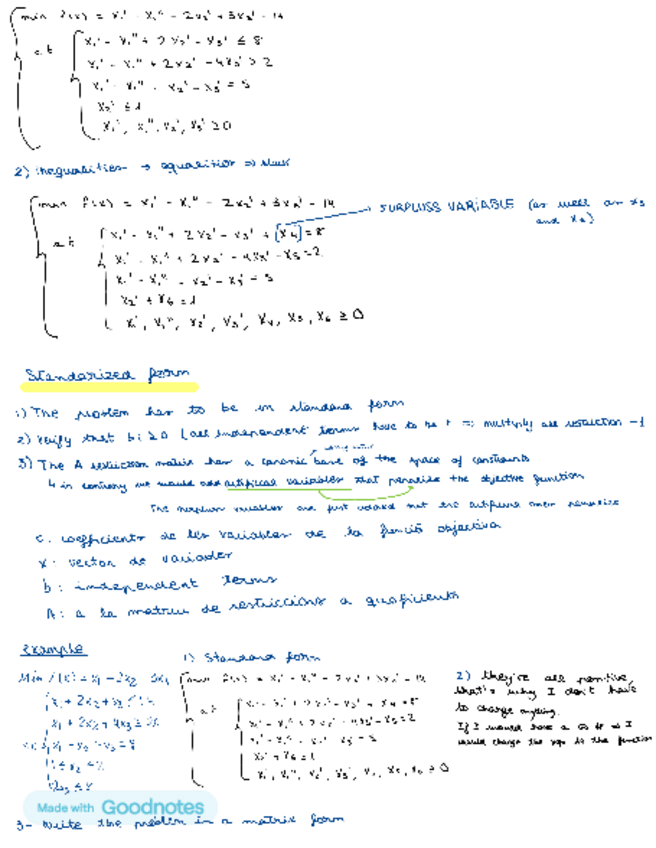 min f(x) = x₁' - x₁'' - 2x₂' + 3x₃' - 14
s.t. x₁' - x₁'' + 2x₂' - x₃' ≤ 8
x₁' - x₁'' + 2x₂' - 4x₃' ≥ 2
x₁' - x₁'' - x₂' - x₃' = 5
x₂' ≤ 1
x₁', x₁'', x₂', x₃' ≥ 0
2) Inequalities → equalities ⇒ slack
min f(x) = x₁' - x₁'' - 2x₂' + 3x₃' - 14
→ SURPLUSS VARIABLE (as well as x₅ and x₆)
s.t. x₁' - x₁'' + 2x₂' - x₃' + [x₄] = 8
x₁' - x₁'' + 2x₂' - 4x₃' - x₅ = 2
x₁' - x₁'' - x₂' - x₃' = 5
x₂' + x₆ = 1
x₁', x₁'', x₂', x₃', x₄, x₅, x₆ ≥ 0
Standarized form
1) The problem has to be in standard form
2) Verify that bi ≥ 0 (all independent terms have to be + ⇒ multiply all restriction -1
3) The A restriction matrix has a canonic base of the space of constraints
↳ in contrary we would add artificial variables that penalize the objective function
The surplus variables are just added not the artificial ones penalize
c: coefficients de les variables de la funció objectiva
x: vector de variables
b: independent terms
A: a la matriu de restriccions a
example
1) Standard form
Min f(x) = x₁ - 2x₂
min f(x) = x₁' - x₁'' - 2x₂' + 3x₃' - 14
s.t. x₁' - x₁'' + 2x₂' - x₃' + x₄ = 8
x₁' - x₁'' + 2x₂' - 4x₃' - x₅ = 2
x₁' - x₁'' - x₂' - x₃' = 5
x₂' + x₆ = 1
x₁', x₁'', x₂', x₃', x₄, x₅, x₆ ≥ 0
2) they're all positive,
that's why I don't have
to change anything.
If I would have a
would change the sign to the function
Made with Goodnotes
3- Write the problem in a matrix form